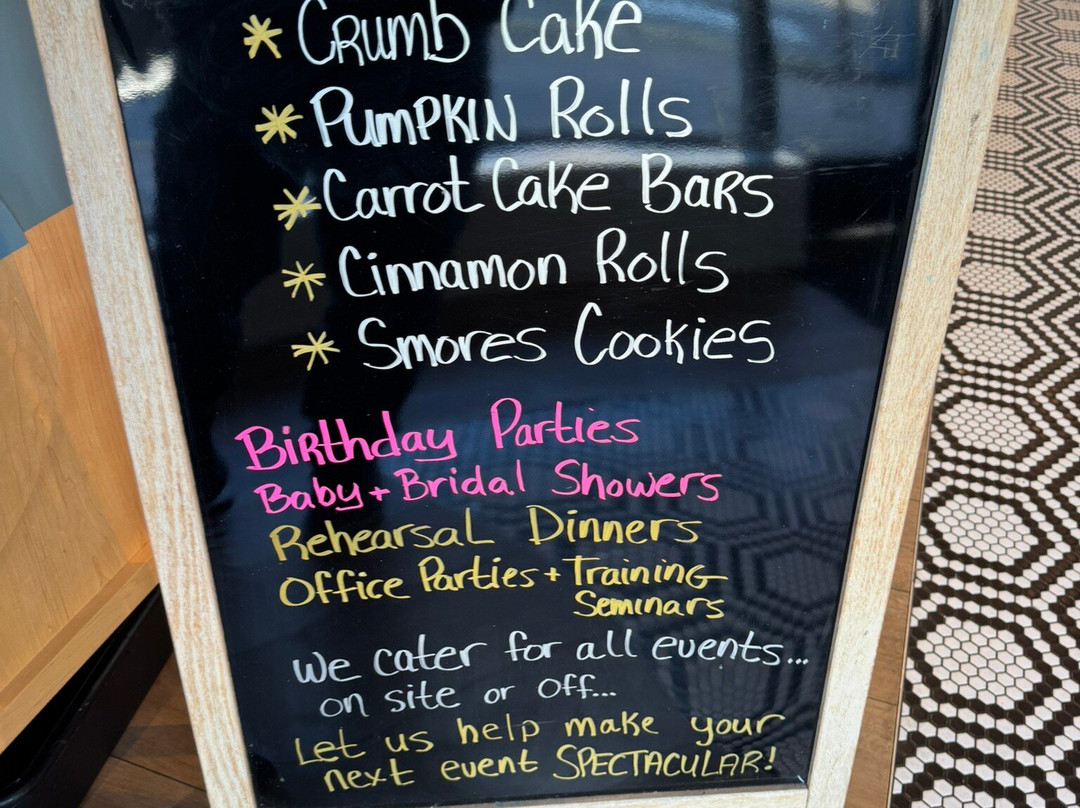 * Crumb Cake
* Pumpkin Rolls
* Carrot Cake Bars
* Cinnamon Rolls
* Smores Cookies
Birthday Parties
Baby + Bridal Showers
Rehearsal Dinners
Office Parties + Training
Seminars
We cater for all events...
on site or off...
Let us help make your
next event SPECTACULAR!